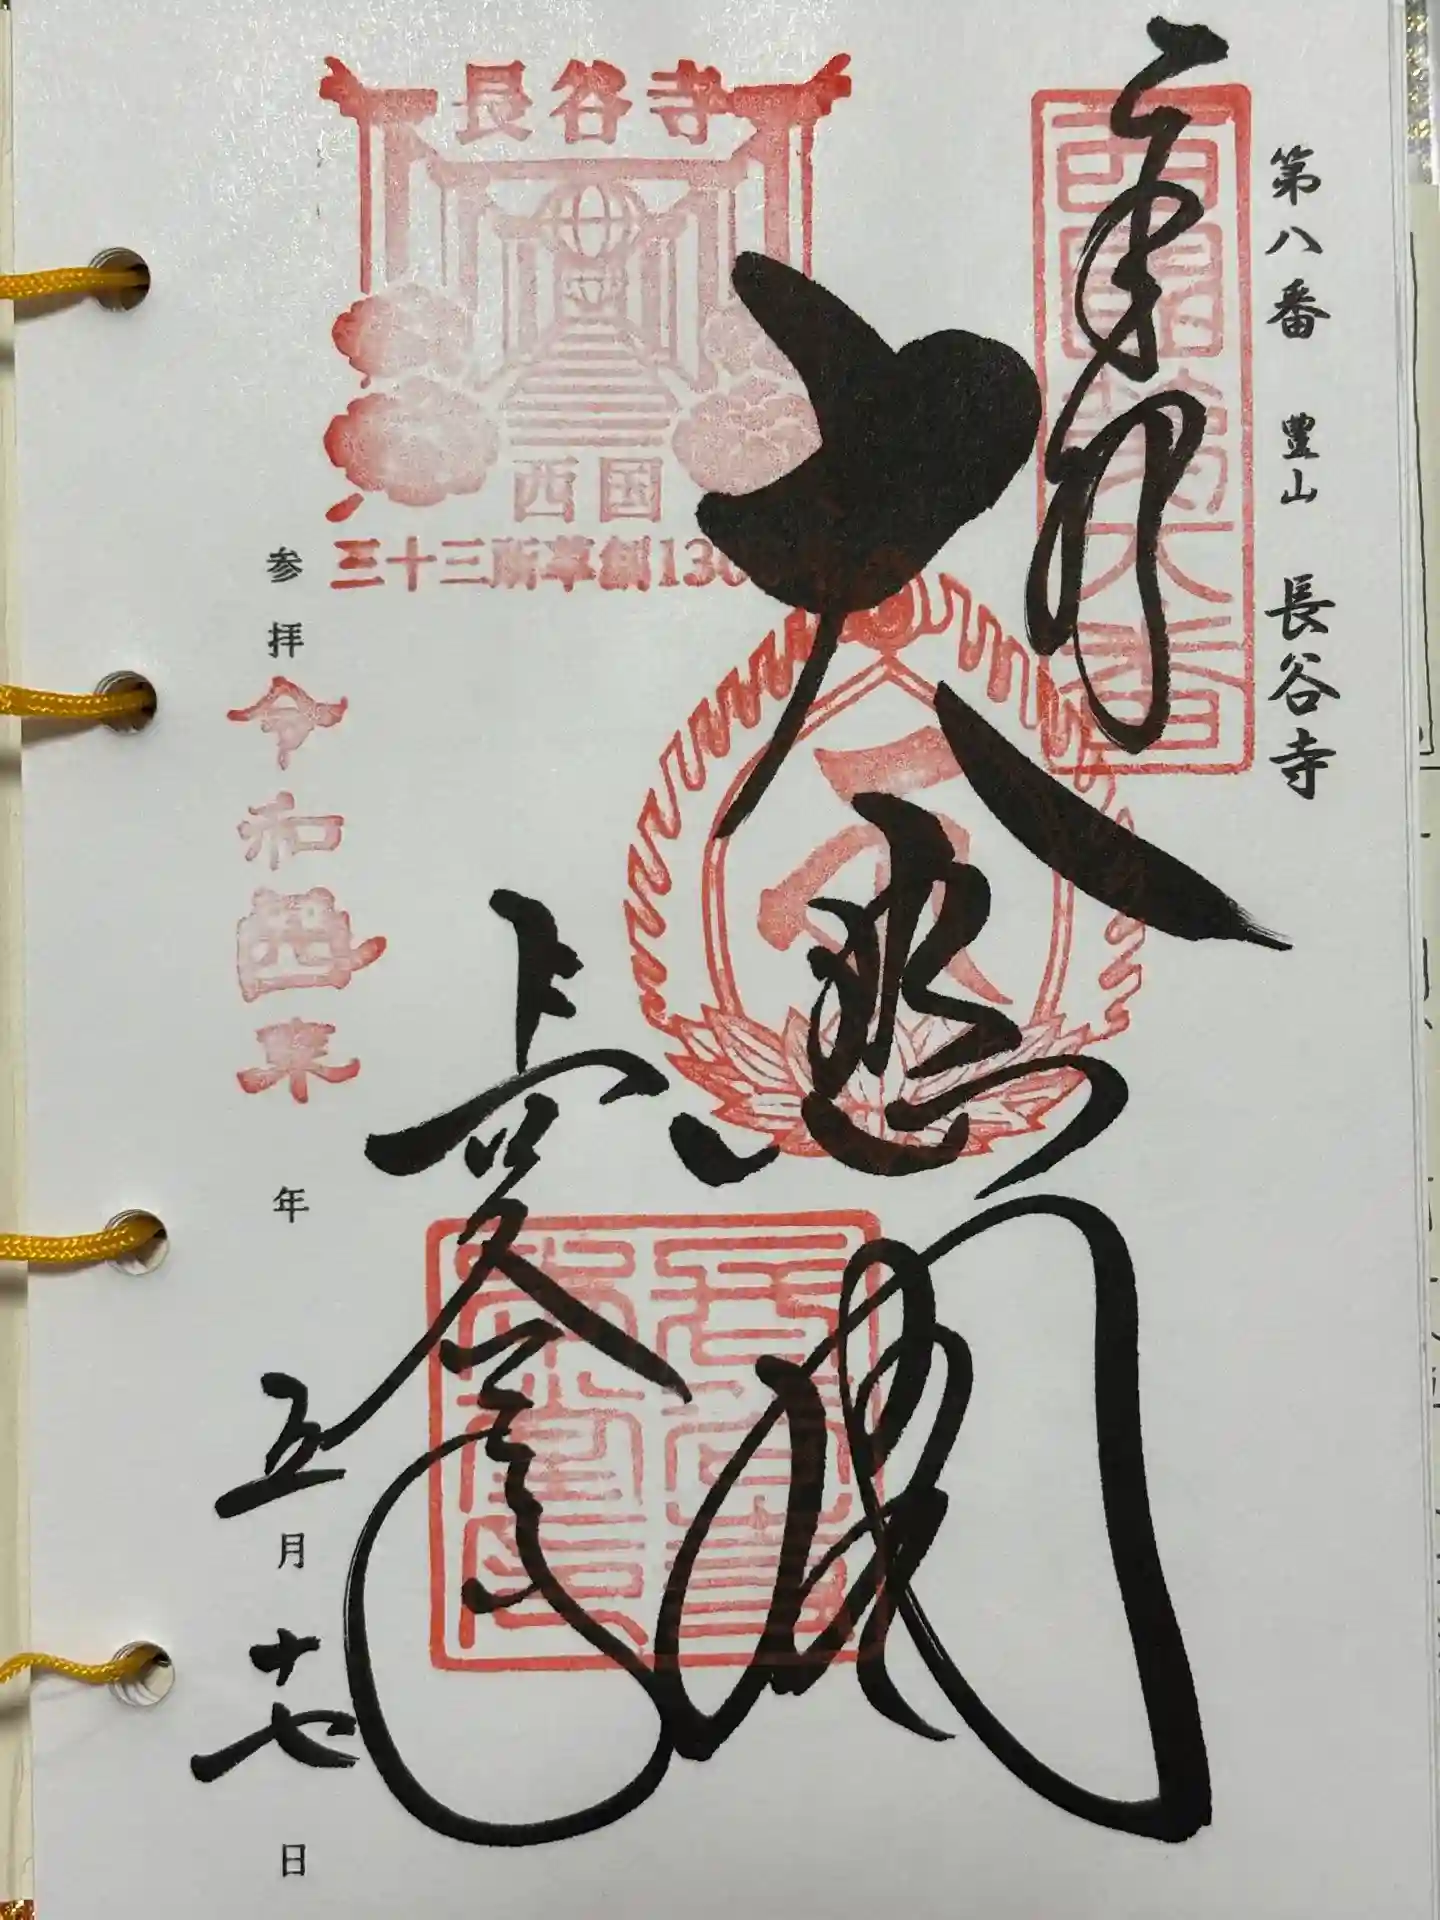 第八番 豊山 長谷寺
奉拝
西國第八番
大悲閣
長谷寺
西国
三十三所草創13
長谷寺
参拝 令和 年 五月 十七日